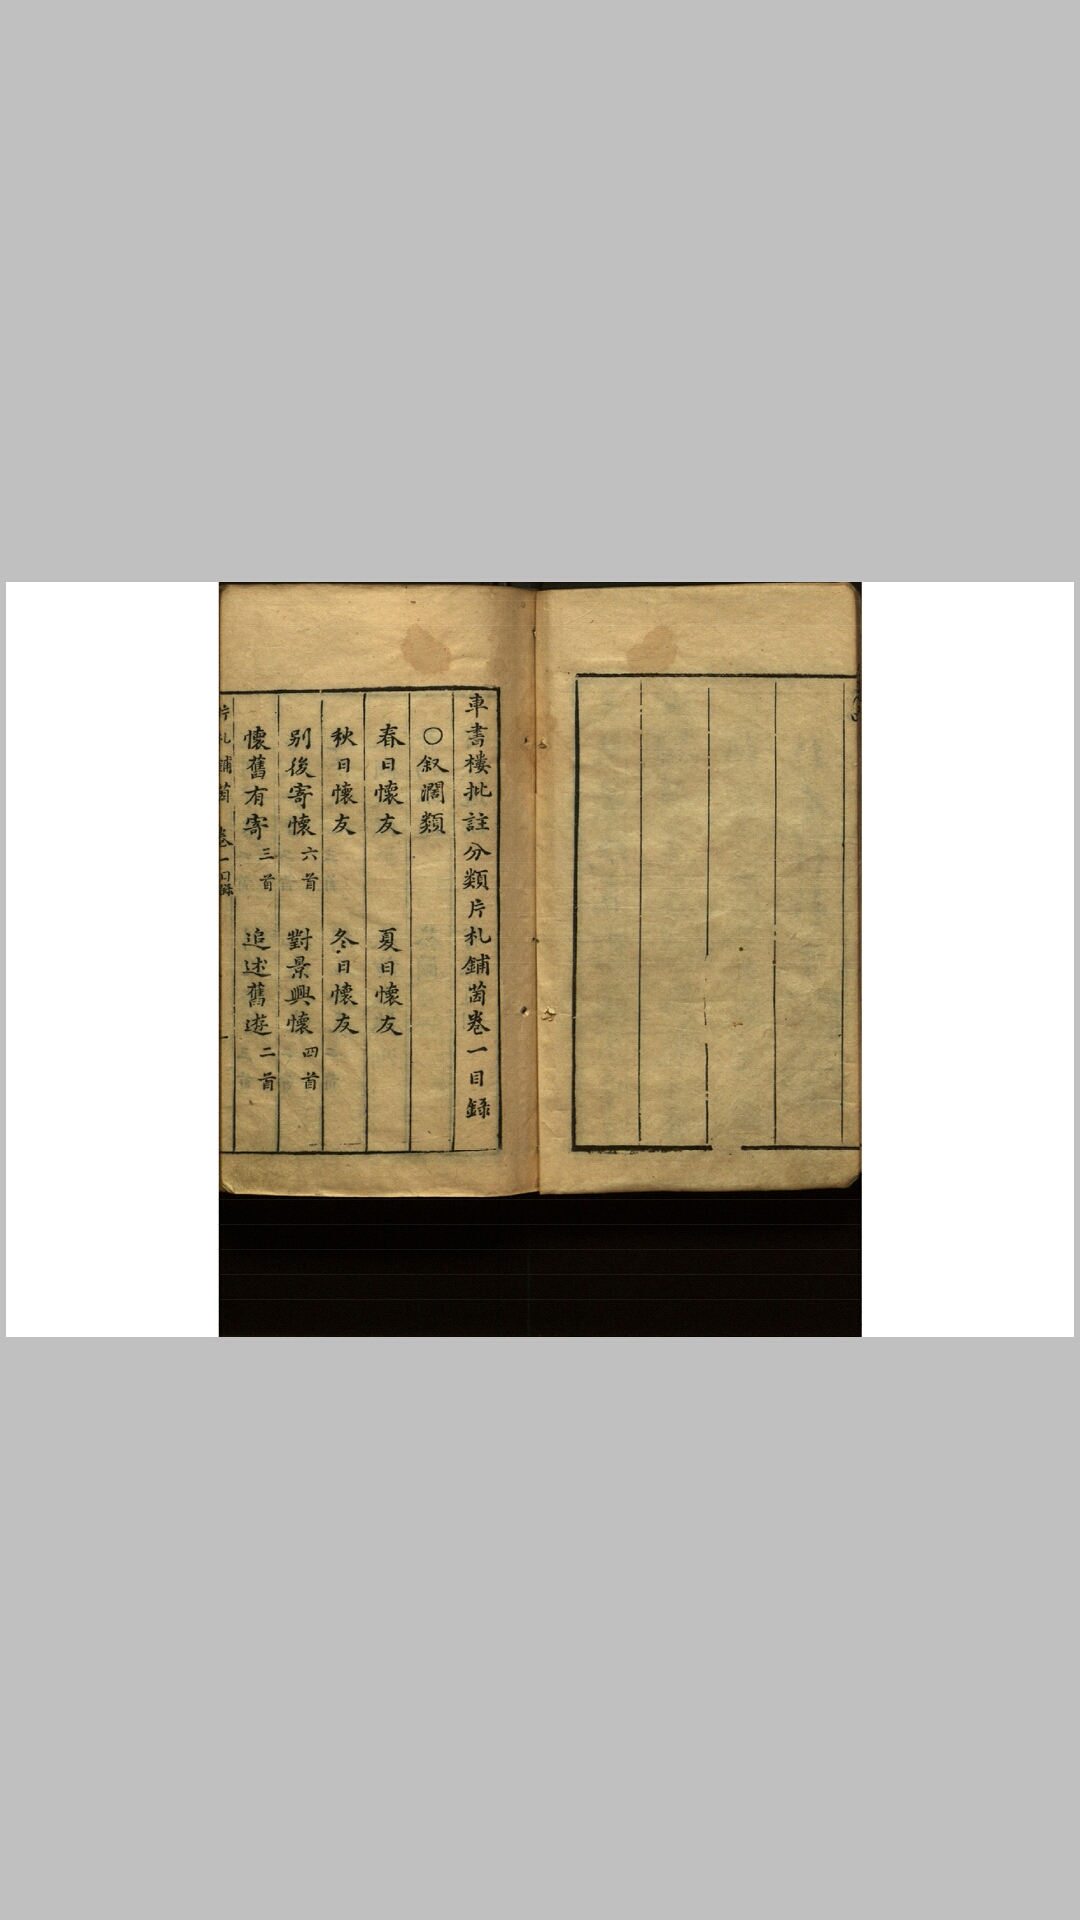 車書樓批註分類片札鋪茵卷一目錄
○叙濶類
春日懷友 夏日懷友
秋日懷友 冬日懷友
别後寄懷六首 對景興懷四首
懷舊有寄三首 追述舊遊二首
片札鋪茵 卷一目錄 一